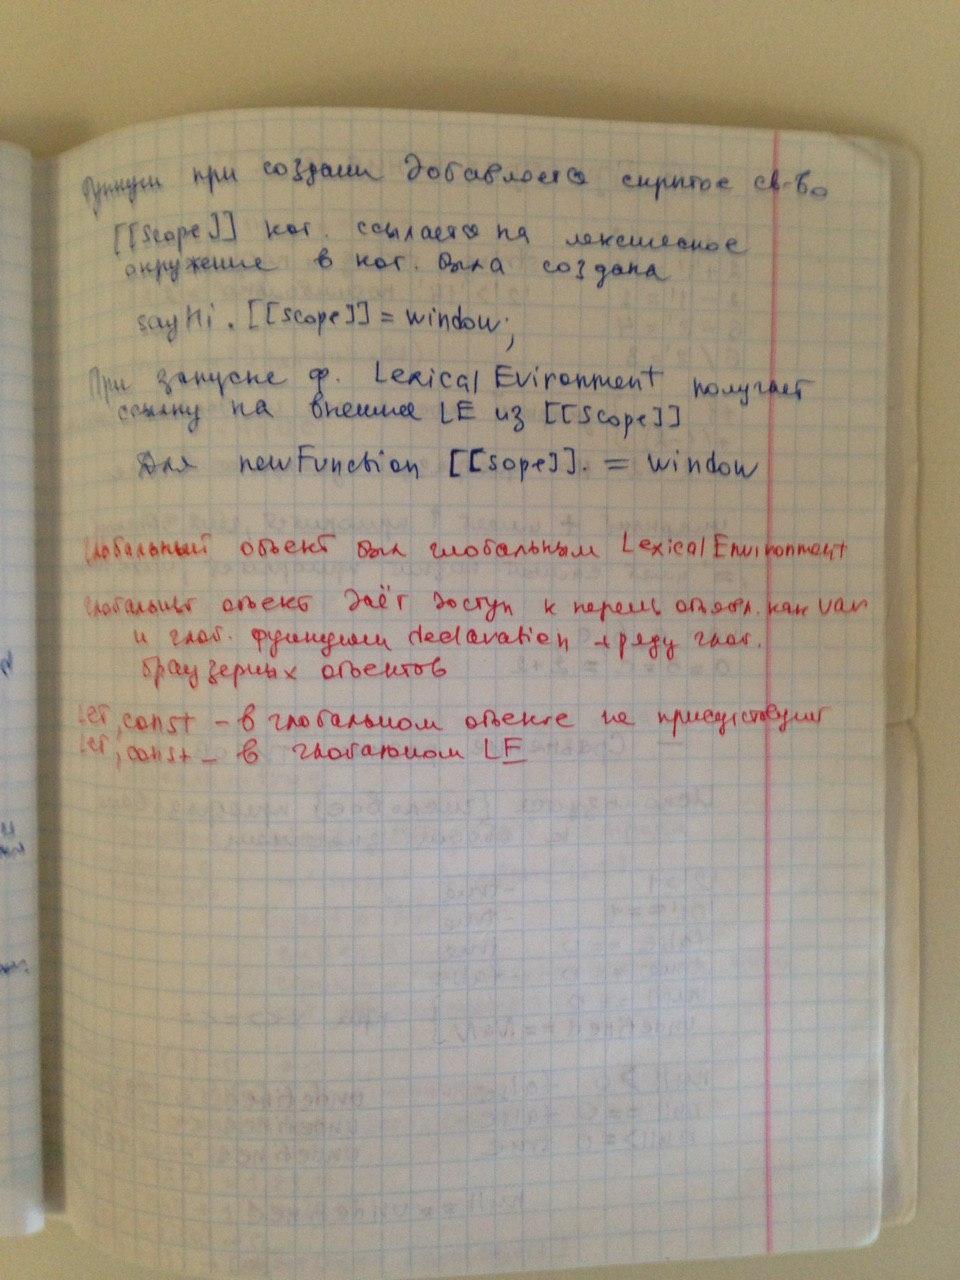 Функции при создании добавляется скрытое св-во
[[Scope]] кот. ссылается на лексическое
окружение в кот. была создана
sayHi.[[Scope]] = window;
При запуске ф. Lexical Evironment получает
ссылку на внешнее LE из [[Scope]]
Для newFunction [[sope]]. = window
Глобальный объект был глобальным Lexical Environment
глобальный объект даёт доступ к перем. объявл. как var
и глоб. функциям declaration + ряду глоб.
браузерных объектов
Let, const – в глобальном объекте не присутствуют
Let, const – в глобальном LE